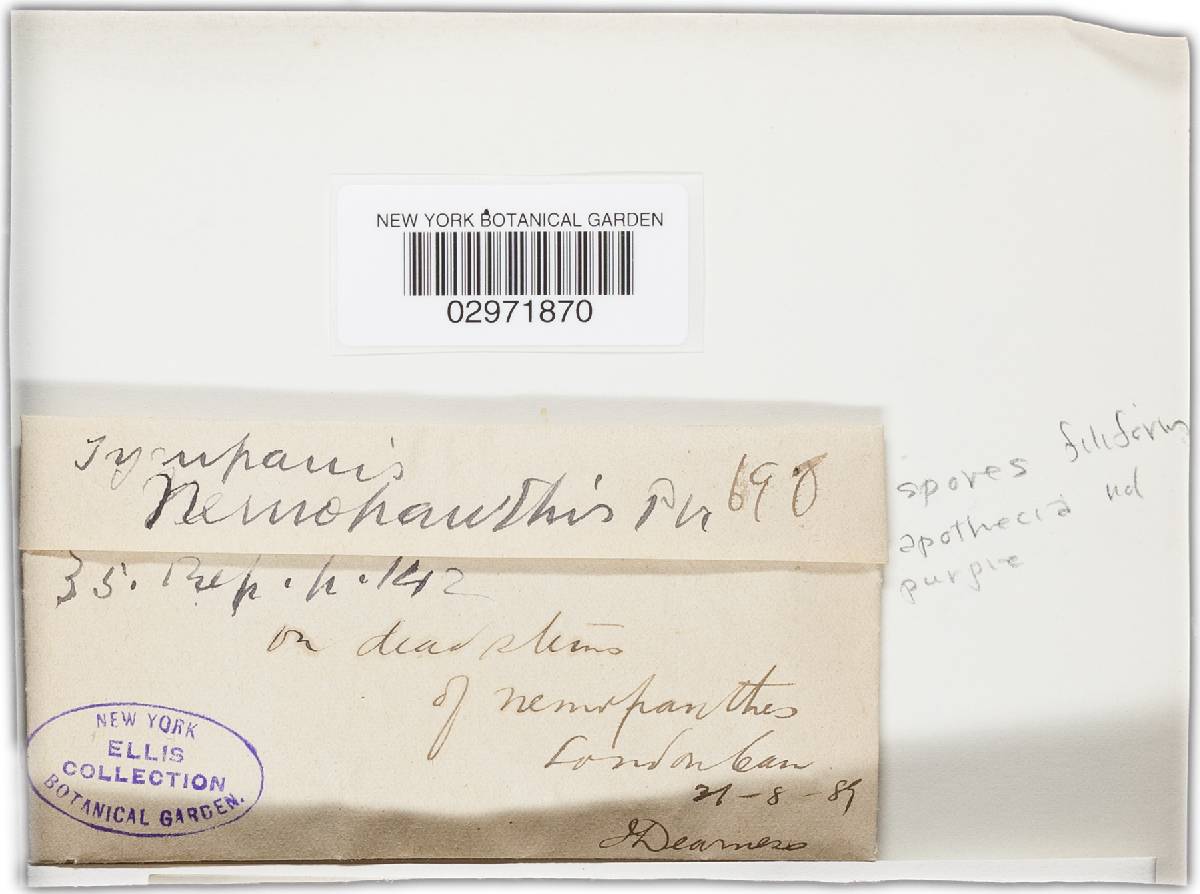 NEW YORK BOTANICAL GARDEN
02971870
Tympanis
Nemopanthis Pk 690
35. Rep. p. 142
on dead stems
of nemopanthes
London Can
21-8-89
JDearness
NEW YORK
ELLIS
COLLECTION
BOTANICAL GARDEN.
spores filiform
apothecia nd
purple